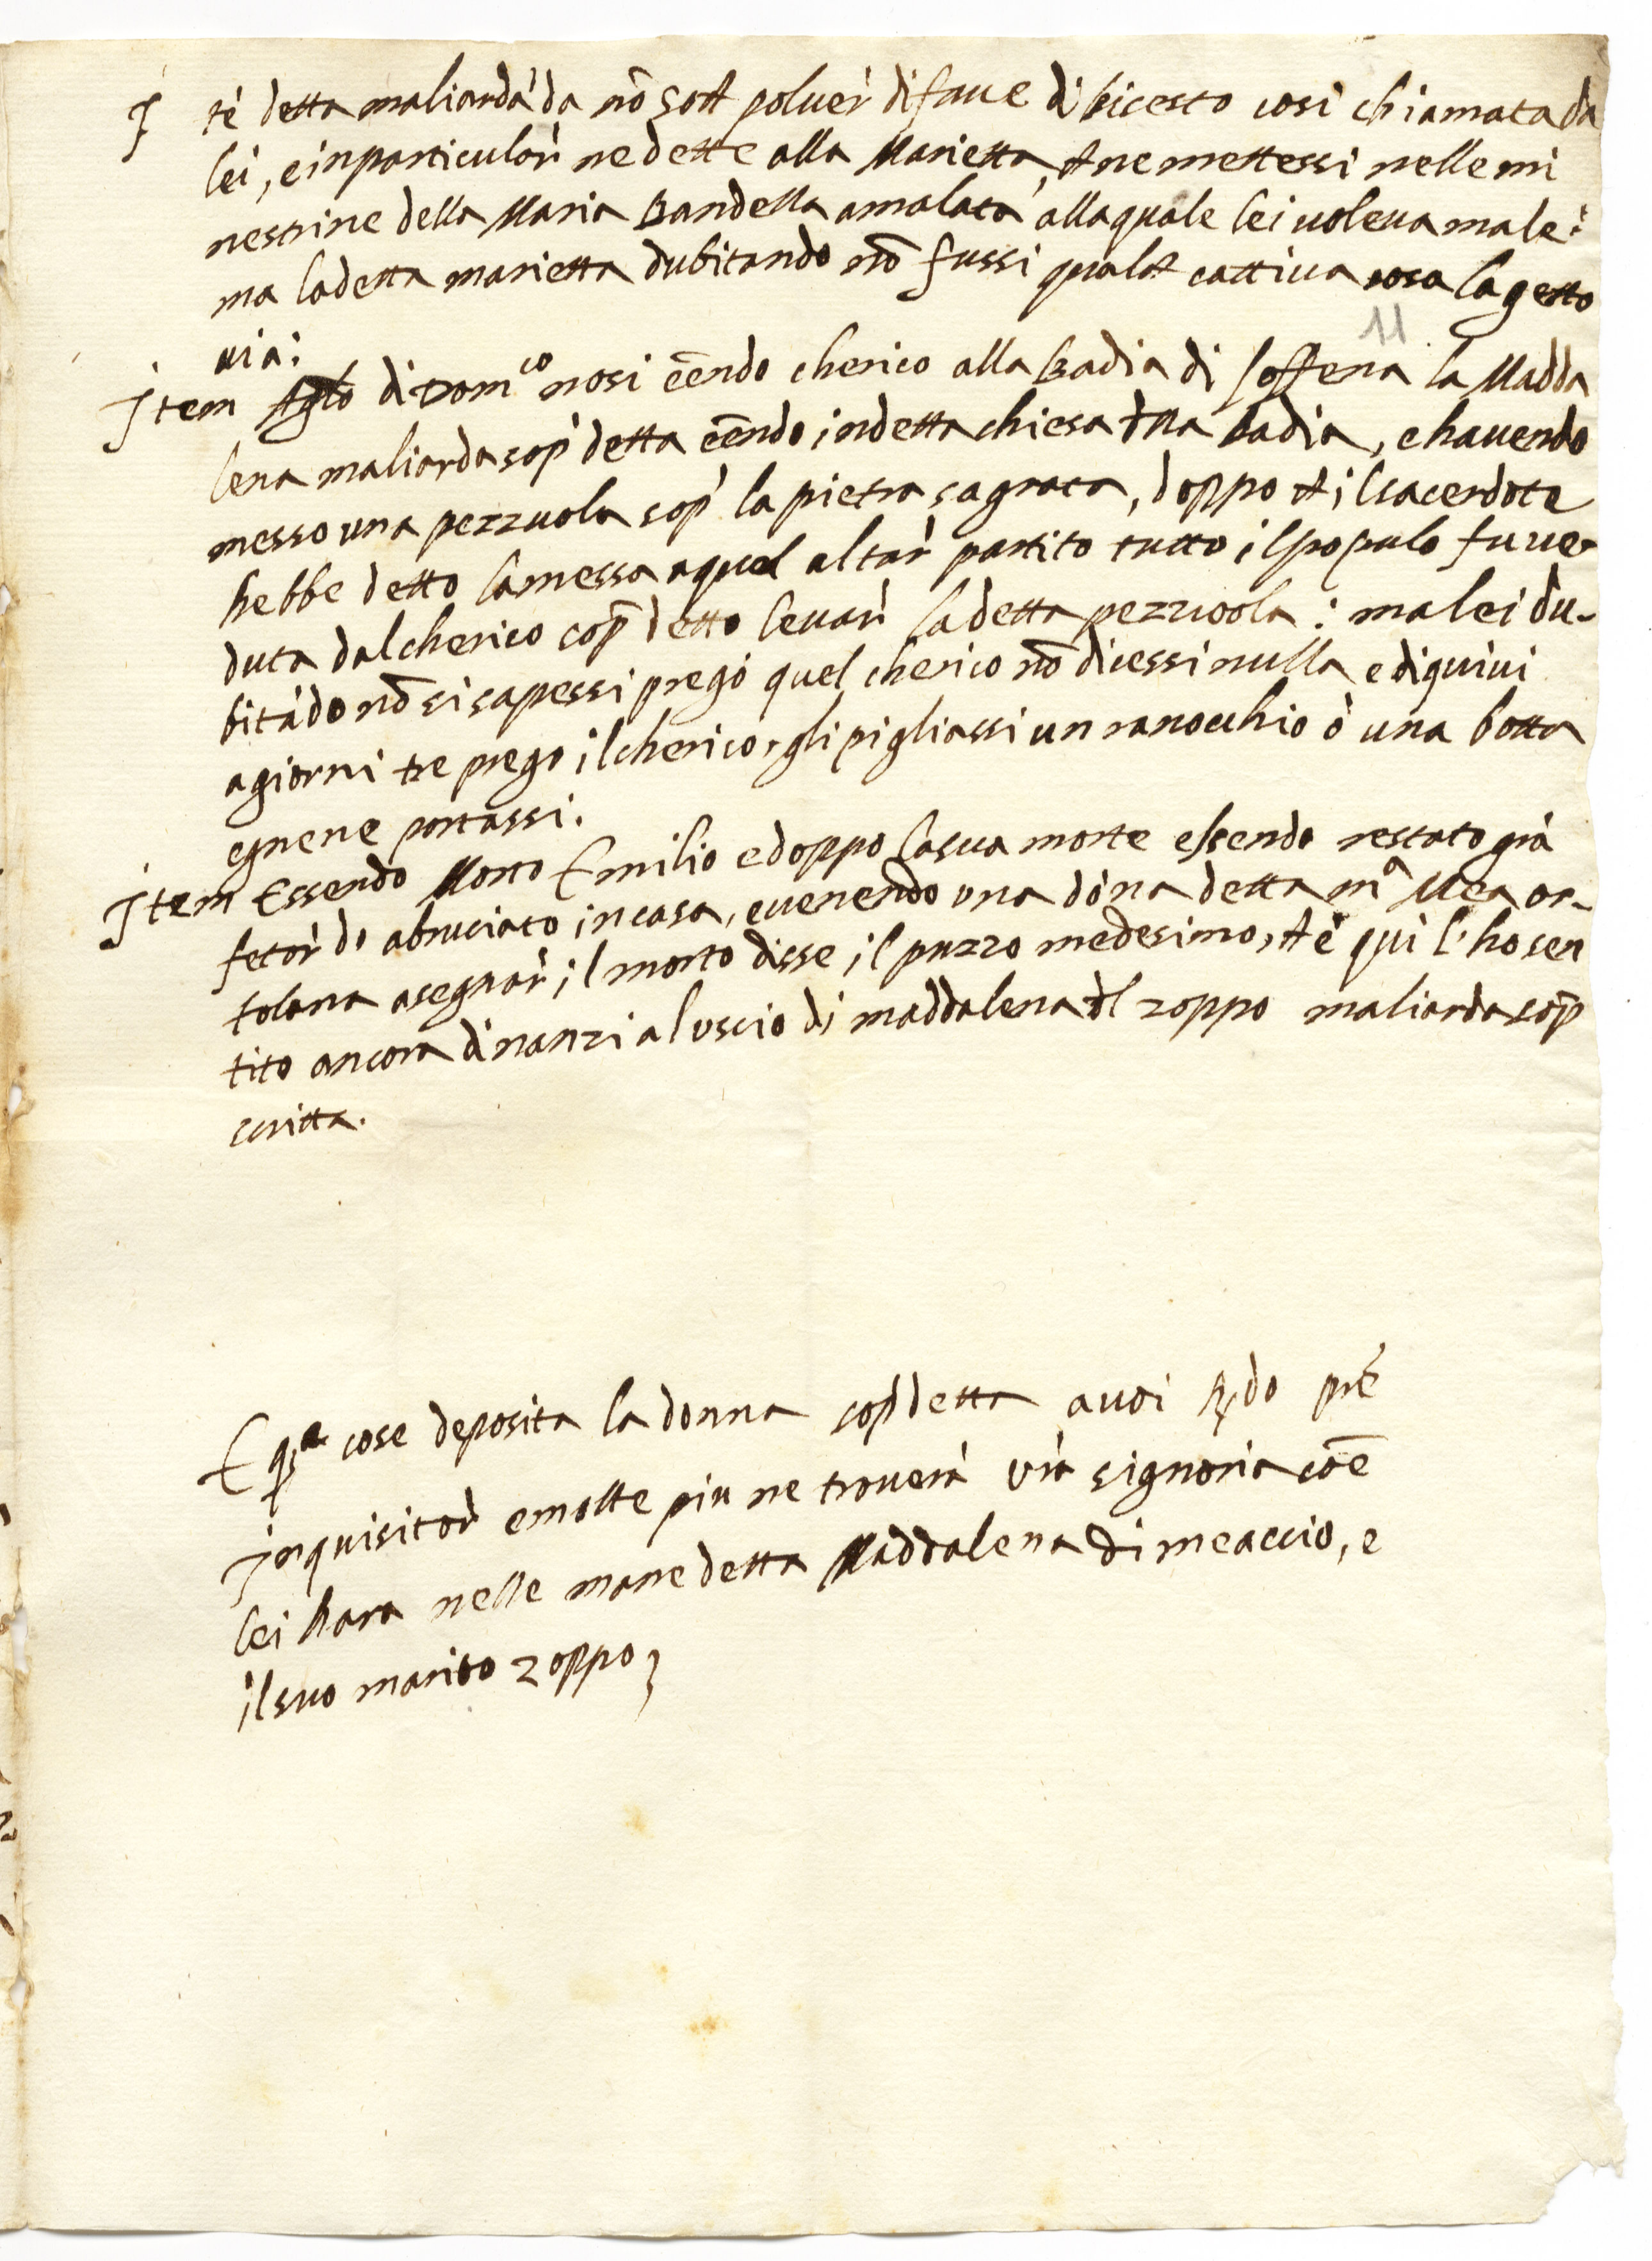 I tè detta maliarda da nō sò che poluer̀ di faue di bicesto cosi chiamata da
lei, e inparticular̀ ne dette alla Marietta, che ne mettessi nelle mi
nestrine della Maria Bandella amalata alla quale lei uoleua male:
ma la detta marietta dubitando nō fussi qualche cattiua cosa la getto
uia:
11
Item di Dom.co nosi eēndo cherico alla Badia di soffena la Madda
lena maliarda sop̀ detta eēndo in detta chiesa della badia, e hauendo
messo una pezzuola sop̀ la pietra sagrata, doppo che il sacerdote
hebbe detto la messa a quel altar̀ partito tutto il populo fu ue-
duta dal cherico sop̄ detto leuar̀ la detta pezzuola: ma lei du-
bitādo nō si sapessi pregò quel cherico nō dicessi nulla e di quiui
a giorni tre prego il cherico, gli pigliassi un ranocchio ò una botta
e gnene portassi.
Item Essendo Morto Emilio e doppo la sua morte essendo restato grā
fetor̀ di abruciato in casa, e uenendo una dōna detta m.a Mea or-
tolana a segnar̀ il morto disse il puzzo medesimo, che è qui l'ho sen
tito ancora dinanzi al uscio di maddalena del zoppo maliarda sop̄
scritta.
E q.te cose deposita la donna sop̄ detta a uoi R.do prē
Inquisitor̀ e molte piu ne trouerà vr̄a signoria cōe
lei hara nelle mane detta Maddalena di meaccio, e
il suo marito zoppo